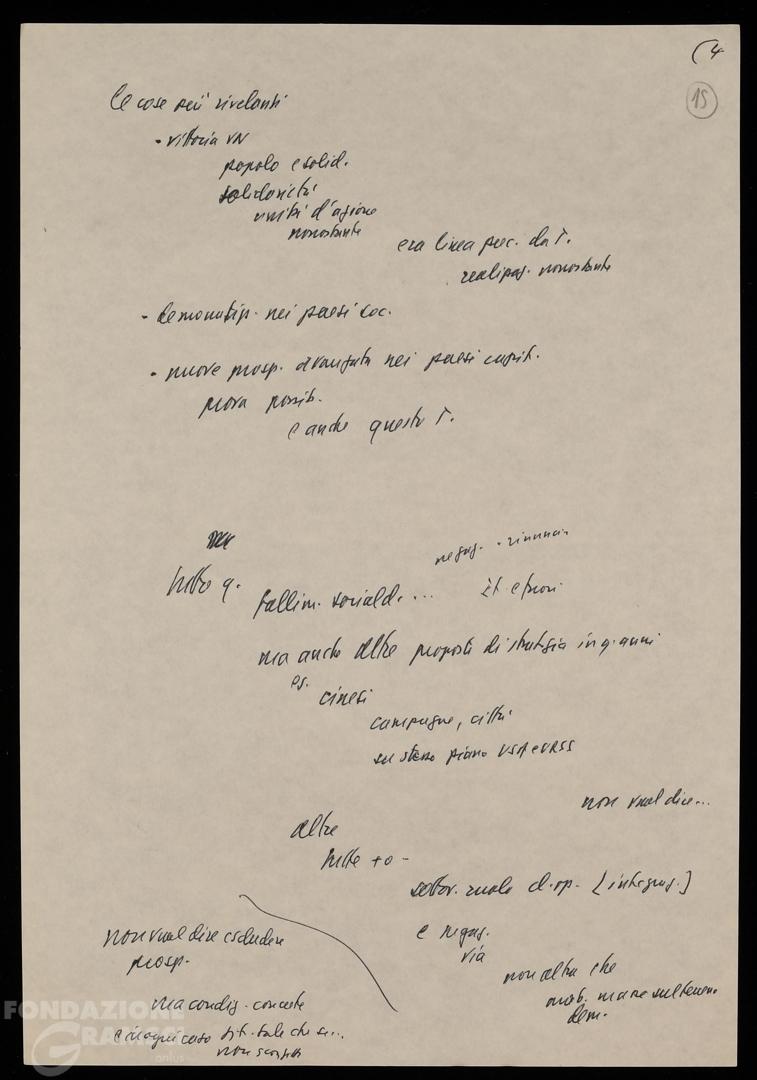 (4
15
le cose più rivelanti
- vittoria VN
popolo e solid.
solidarietà
unità d'azione
nonostante
era linea prec. da T.
realipaz. nonostante
- demonatip. nei paesi soc.
- nuove prosp. avanzata nei paesi capit.
nuova possib.
e anche questo T.
ma
tutto q.
negaz. - rinuncia
fallim. sociald. ...
It. e fuori
ma anche altre proposte di strategia in q. anni
es.
cinesi
campagne, città
su stesso piano USA e URSS
non vuol dire...
altre
tutte + o -
sottov. ruolo cl. op. [integraz.]
e negaz.
via
non altro che
mob. masse sul terreno
dem.
non vuol dire escludere
prosp.
ma condiz. concrete
e in ogni caso sit. tale che se...
FONDAZIONE
GRAMSCI
onlus